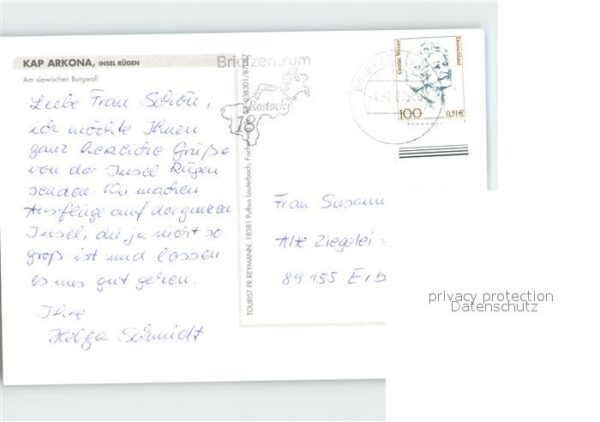 KAP ARKONA, INSEL RÜGEN
Am slawischen Burgwall
Liebe Frau Schön,
ich möchte Ihnen
ganz herzliche Grüße
von der Insel Rügen
senden. Wir machen
Ausflüge auf der ganzen
Insel, die ja nicht so
groß ist und lassen
es uns gut gehen.
Ihre
Helga Schmidt
TOURIST PR REYMANN, 18581 Putbus-Lauterbach, Fischer
Briefzentrum
18
Rostock
Deutschland
100
0,51€
Frau Susann
Alte Ziegelei
89155 Erb
privacy protection
Datenschutz